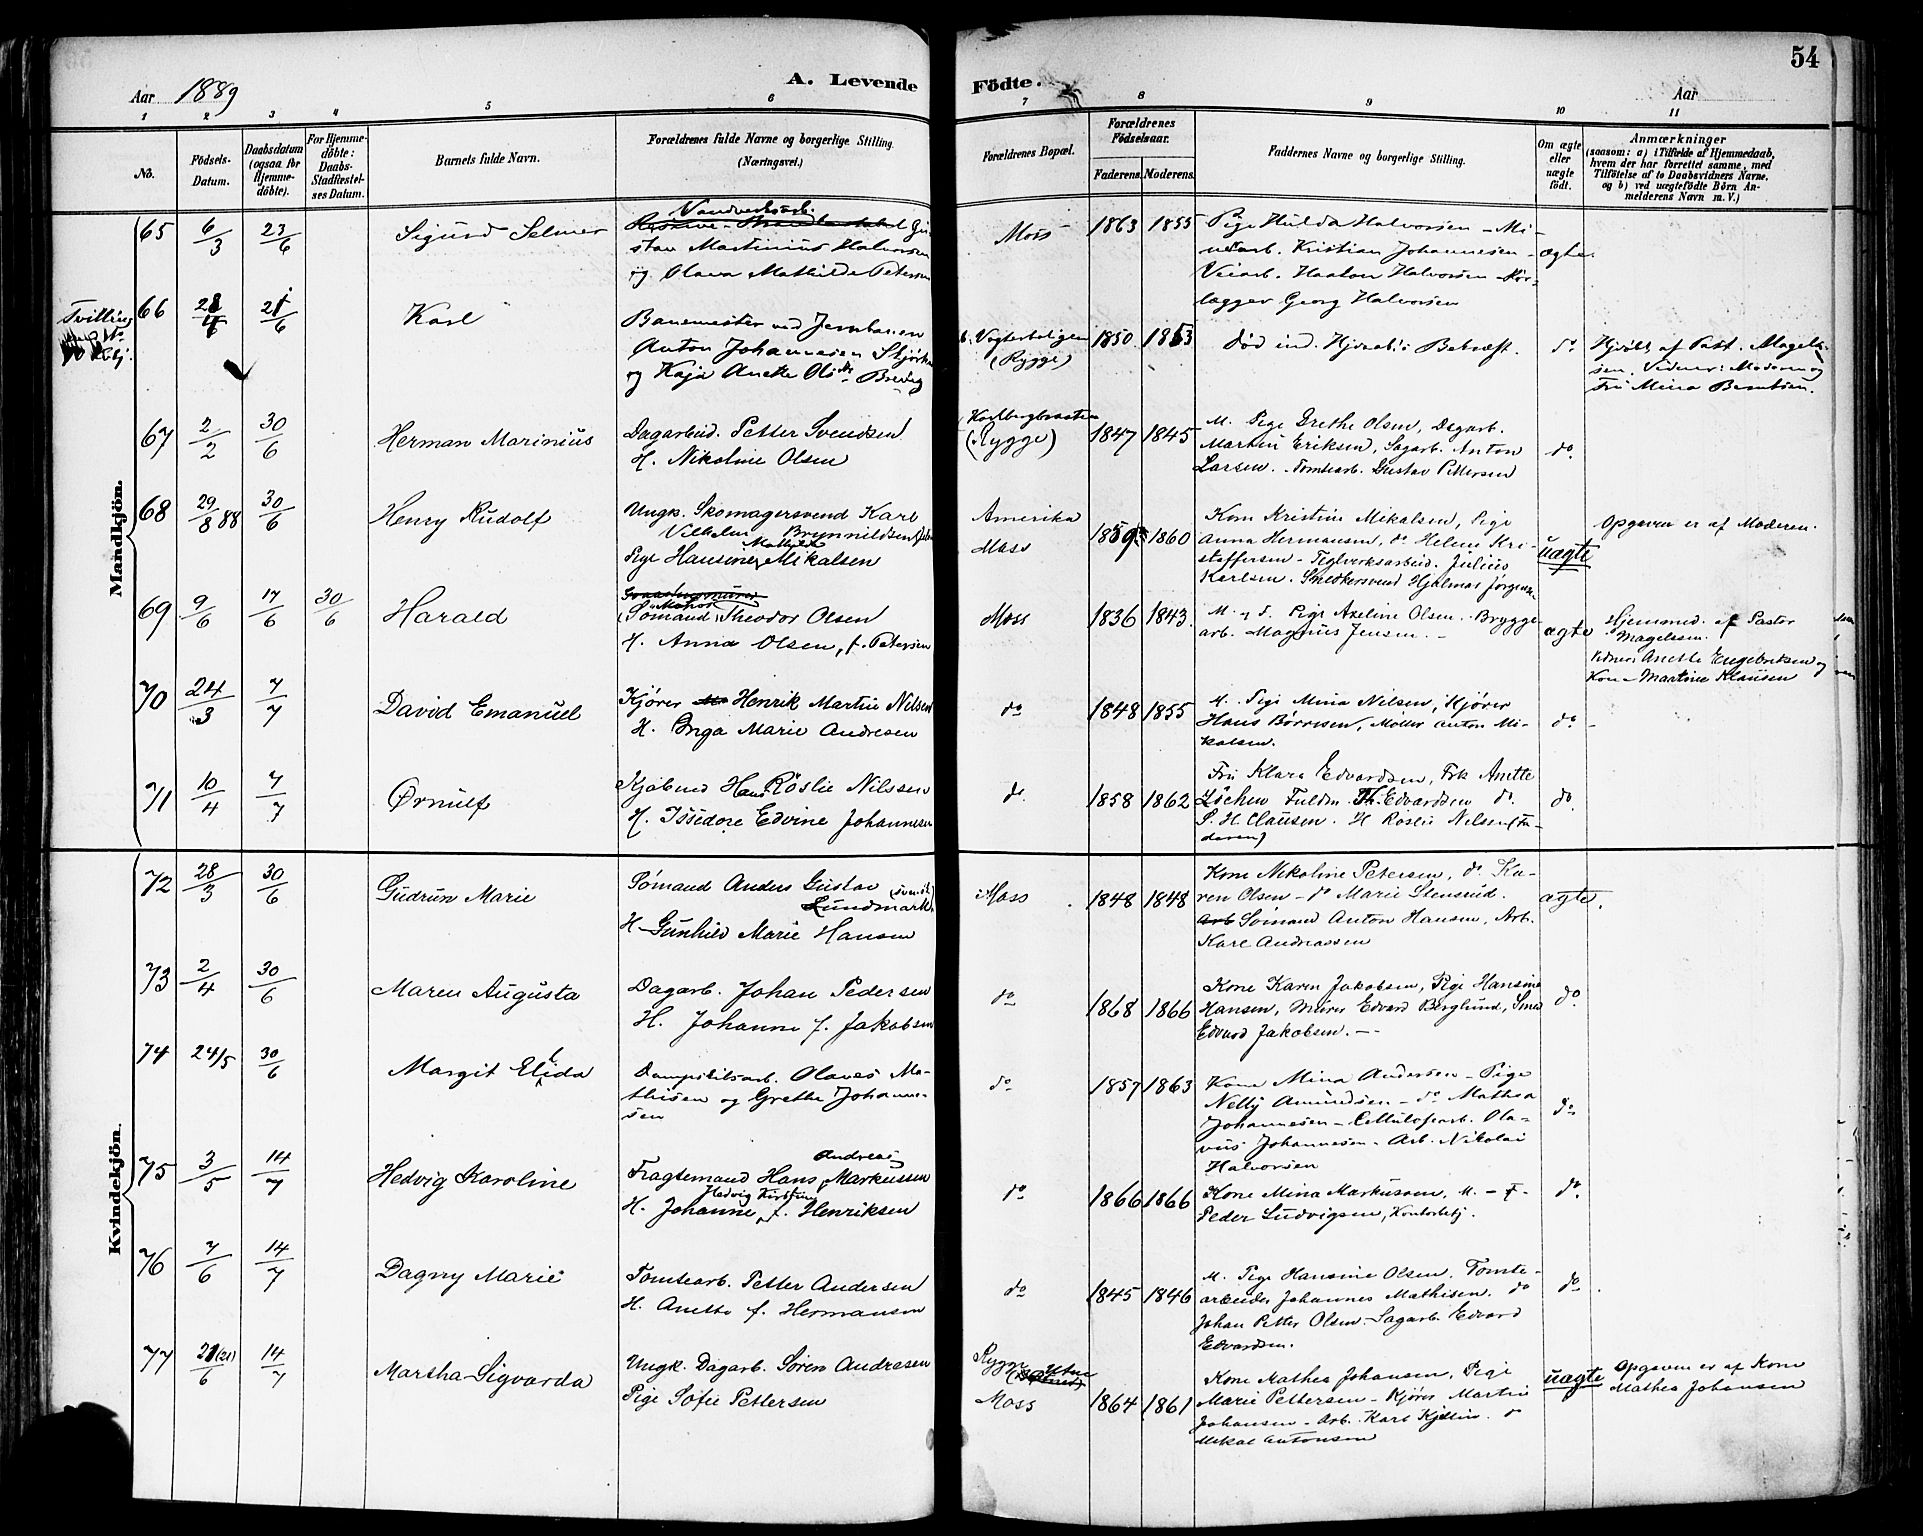 54
Aar 1889
A. Levende
Födte.
Aar
1 2 3 4 5 6 7 8 9 10 11
No.
Födsels-
Datum.
Daabsdatum
(ogsaa for
Hjemme-
döbte).
For Hjemme-
döbte:
Daabs-
Stadfæstel-
ses Datum.
Barnets fulde Navn.
Forældrenes fulde Navne og borgerlige Stilling.
(Næringsvei.)
Forældrenes Bopæl.
Forældrenes
Födselsaar.
Faderens.
Moderens.
Faddernes Navne og borgerlige Stilling.
Om ægte
eller
uægte
födt.
Anmærkninger
(saasom: a) i Tilfælde af Hjemmedaab,
hvem der har forrettet samme, med
Tilföielse af to Daabsvidners Navne,
og b) ved uægtefödte Börn An-
melderens Navn m. V.)
Mandkjön.
65 6/3 23/6 Sigurd Selmer
Gu-
stav Martinius Halvorsen
og Olava Mathilde Petersen
Moss 1863 1855
Pige Hulda Halvorsen - Mi-
nearb. Kristian Johannesen -
Veiarb. Haakon Halvorsen - Rör-
lægger Georg Halvorsen
ægte.
Tvilling
66 21/6 Karl
Banemester ved Jernbanen
Anton Johannesen
og Kaja Anette
b. Vogterboligen
(Rygge)
1850 1853
Död ind. Hjdaabs Bekræft.
do
Hjdöbt af Past. Magels-
sen. Vidner: Moderen og
Fru Mina Berntsen.
67 2/2 30/6 Herman Marinius
Dagarbeid. Petter Svendsen
H. Nikoline Olsen
(Rygge)
1847 1845
M. Pige Grethe Olsen, Dagarb.
Martin Eriksen, Sagarb. Anton
Larsen. - Tomtearb. Gustav Pettersen
do.
68 29/8 88 30/6 Henry Rudolf
Ungk. Skomagersvend Karl
Vilhelm Brynnildsen
Pige Hansine Mathilde Mikalsen
Amerika
Moss
1859 1860
Kone Kristine Mikalsen, Pige
Anna Hermansen, do Helene Kri-
stoffersen - Teglverksarbeid. Julius
Karlsen. Snedkersvend Hjalmar Jörgensen
uægte
Opgaven er af Moderen.
69 9/6 17/6 30/6 Harald
Sömand Theodor Olsen
H. Anna Olsen, f. Petersen
Moss 1836 1843.
M. og F. Pige Axeline Olsen. Brygge-
arb. Magnus Jensen. -
ægte
Hjemmed. af Pastor
Magelssen.
Vidner: Anette Engebretsen og
Kone Martine Klausen
70 24/3 7/7 David Emanuel
Kjörer Henrik Martin Nilsen
H. Inga Marie Andresen
do 1848 1855
M. Pige Mina Nilsen, Kjörer
Hans Börresen, Möller Anton Mi-
kalsen.
do
71 10/4 7/7 Ørnulf
Kjöbmd Hans Röslie Nilssen
H. Issidore Edvine Johannesen
do. 1858 1862
Fru Klara Edvardsen, Frk Anette
Löchen Fuldm. Th. Edvardsen do.
S. H. Clausen. H Roslie Nilsen (Fa-
deren)
do.
Kvindekjön.
72 28/3 30/6 Gudrun Marie
Sömand Anders Gustav (svensk)
Lundmark
H. Gunhild Marie Hansen
Moss. 1848 1848
Kone Nikoline Petersen, do. Ka-
ren Olsen - do Marie Stensrud.
Arb Sömand Anton Hansen, Arb.
Karl Andreassen
ægte.
73 2/4 30/6 Maren Augusta
Dagarb. Johan Pedersen
H. Johanne f. Jakobsen
do 1868 1866
Kone Karen Jakobsen, Pige Hansine
Hansen, Murer Edvard Berglund, Smed
Edvard Jakobsen. -
do.
74 24/5 30/6 Margit Elida
Dampskibsarb. Olaves Ma-
thisen og Grethe Johanne-
sen
do 1857 1863
Kone Mina Andersen - Pige
Nelly Amundsen - do Mathea
Johannesen - Cellulosearb. Ola-
vus Johannesen - Arb. Nikolai
Halvorsen
do
75 3/5 14/7 Hedvig Karoline
Fragtemand Hans Andreas Markussen
H. Johanne Hedvig Kirstine f. Henriksen
do 1866 1866
Kone Mina Markussen, M. - F.
Peder Ludvigsen, Kontorbetj.
do.
76 7/6 14/7 Dagny Marie
Tomtearb. Petter Andersen
H. Anette f. Hermansen
do 1845 1846
M. Pige Hansine Olsen. Tomte-
arbeider Johannes Mathisen. do
Johan Petter Olsen - Sagarb. Edvard
Edvardsen.
do
77 21(21)/6 14/7 Martha Sigvarda
Ungk. Dagarb. Sören Andresen
Pige Sofie Pettersen
Rygge
Moss
1864 1861
Kone Mathea Johansen, Pige
Marie Pettersen - Kjörer Martin
Johansen - Arb. Karl Kjellin. do
Mikal Antonsen
uægte
Opgaven er af Kone
Mathea Johansen